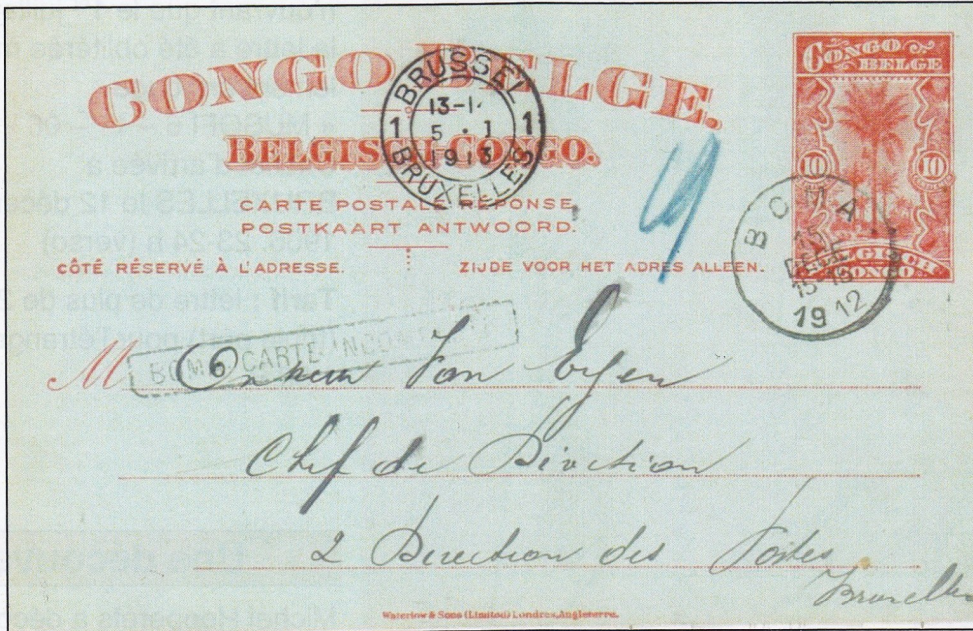 CONGO BELGE.
BELGISCH-CONGO.
CARTE POSTALE RÉPONSE
POSTKAART ANTWOORD.
CÔTÉ RÉSERVÉ À L'ADRESSE.
ZIJDE VOOR HET ADRES ALLEEN.
BRUSSEL
1 13-1 1
5 · 1
1913
BRUXELLES
CONGO
BELGE
10 10
BELGISCH
CONGO
BOMA
15
DECE
15-16
1912
BOMA CARTE
M
Van
Chef de
2 Direction des Postes
Bruxelles
Waterlow & Sons (Limited) Londres, Angleterre.